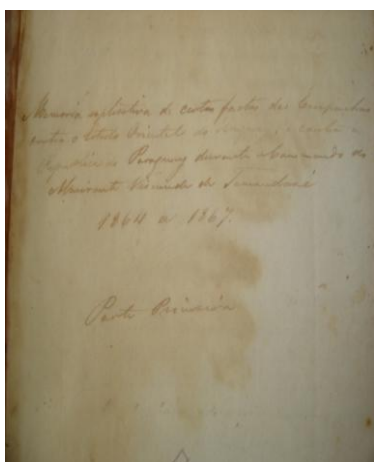 Memoria explicativa de certos factos das Campanhas
contra o Estado Oriental do Uruguay e contra a
Republica do Paraguay durante o Commando do
Almirante Visconde de Tamandaré
1864 a 1867.
Parte Primeira